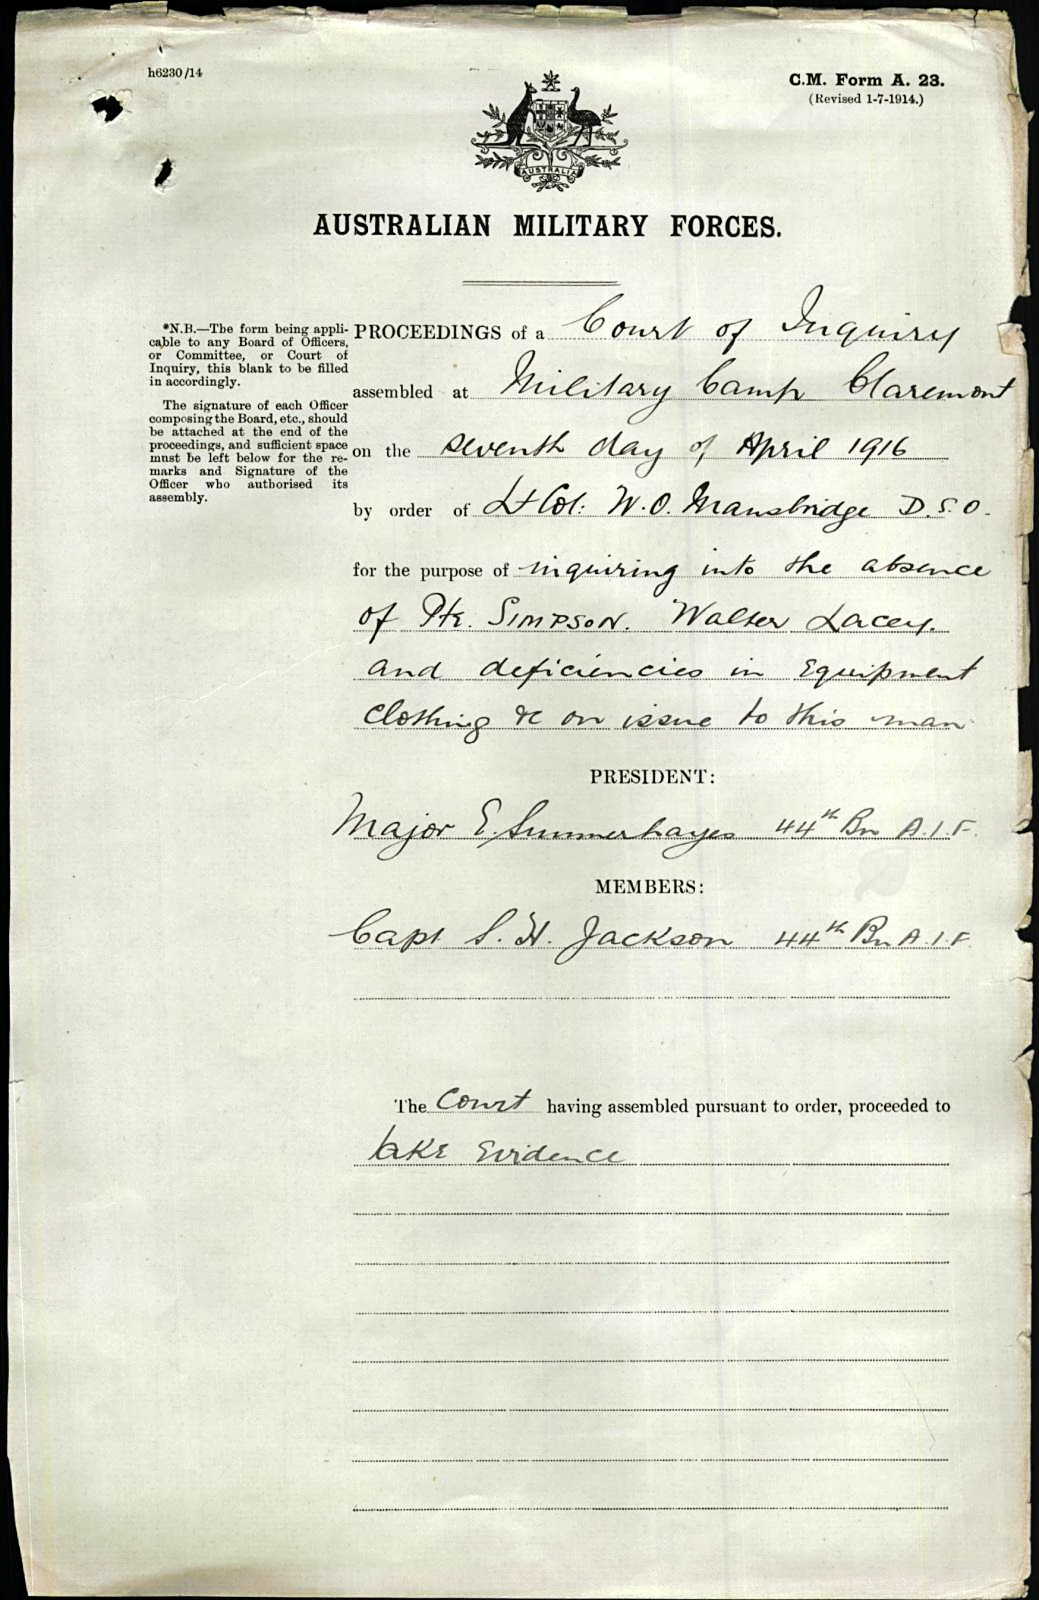 h6230/14
C.M. Form A. 23.
(Revised 1-7-1914.)
AUSTRALIA
AUSTRALIAN MILITARY FORCES.
*N.B.—The form being appli-
cable to any Board of Officers,
or Committee, or Court of
Inquiry, this blank to be filled
in accordingly.
The signature of each Officer
composing the Board, etc., should
be attached at the end of the
proceedings, and sufficient space
must be left below for the re-
marks and Signature of the
Officer who authorised its
assembly.
PROCEEDINGS of a Court of Inquiry
assembled at Military Camp Claremont
on the seventh day of April 1916
by order of Lt Col: W.O. Mansbridge D.S.O.
for the purpose of inquiring into the absence
of Pte. SIMPSON. Walter Lacey.
and deficiencies in Equipment
Clothing &c on issue to this man
PRESIDENT:
Major E. Summerhayes 44th Bn A.I.F.
MEMBERS:
Capt S. H. Jackson 44th Bn A.I.F.
The Court having assembled pursuant to order, proceeded to
take Evidence